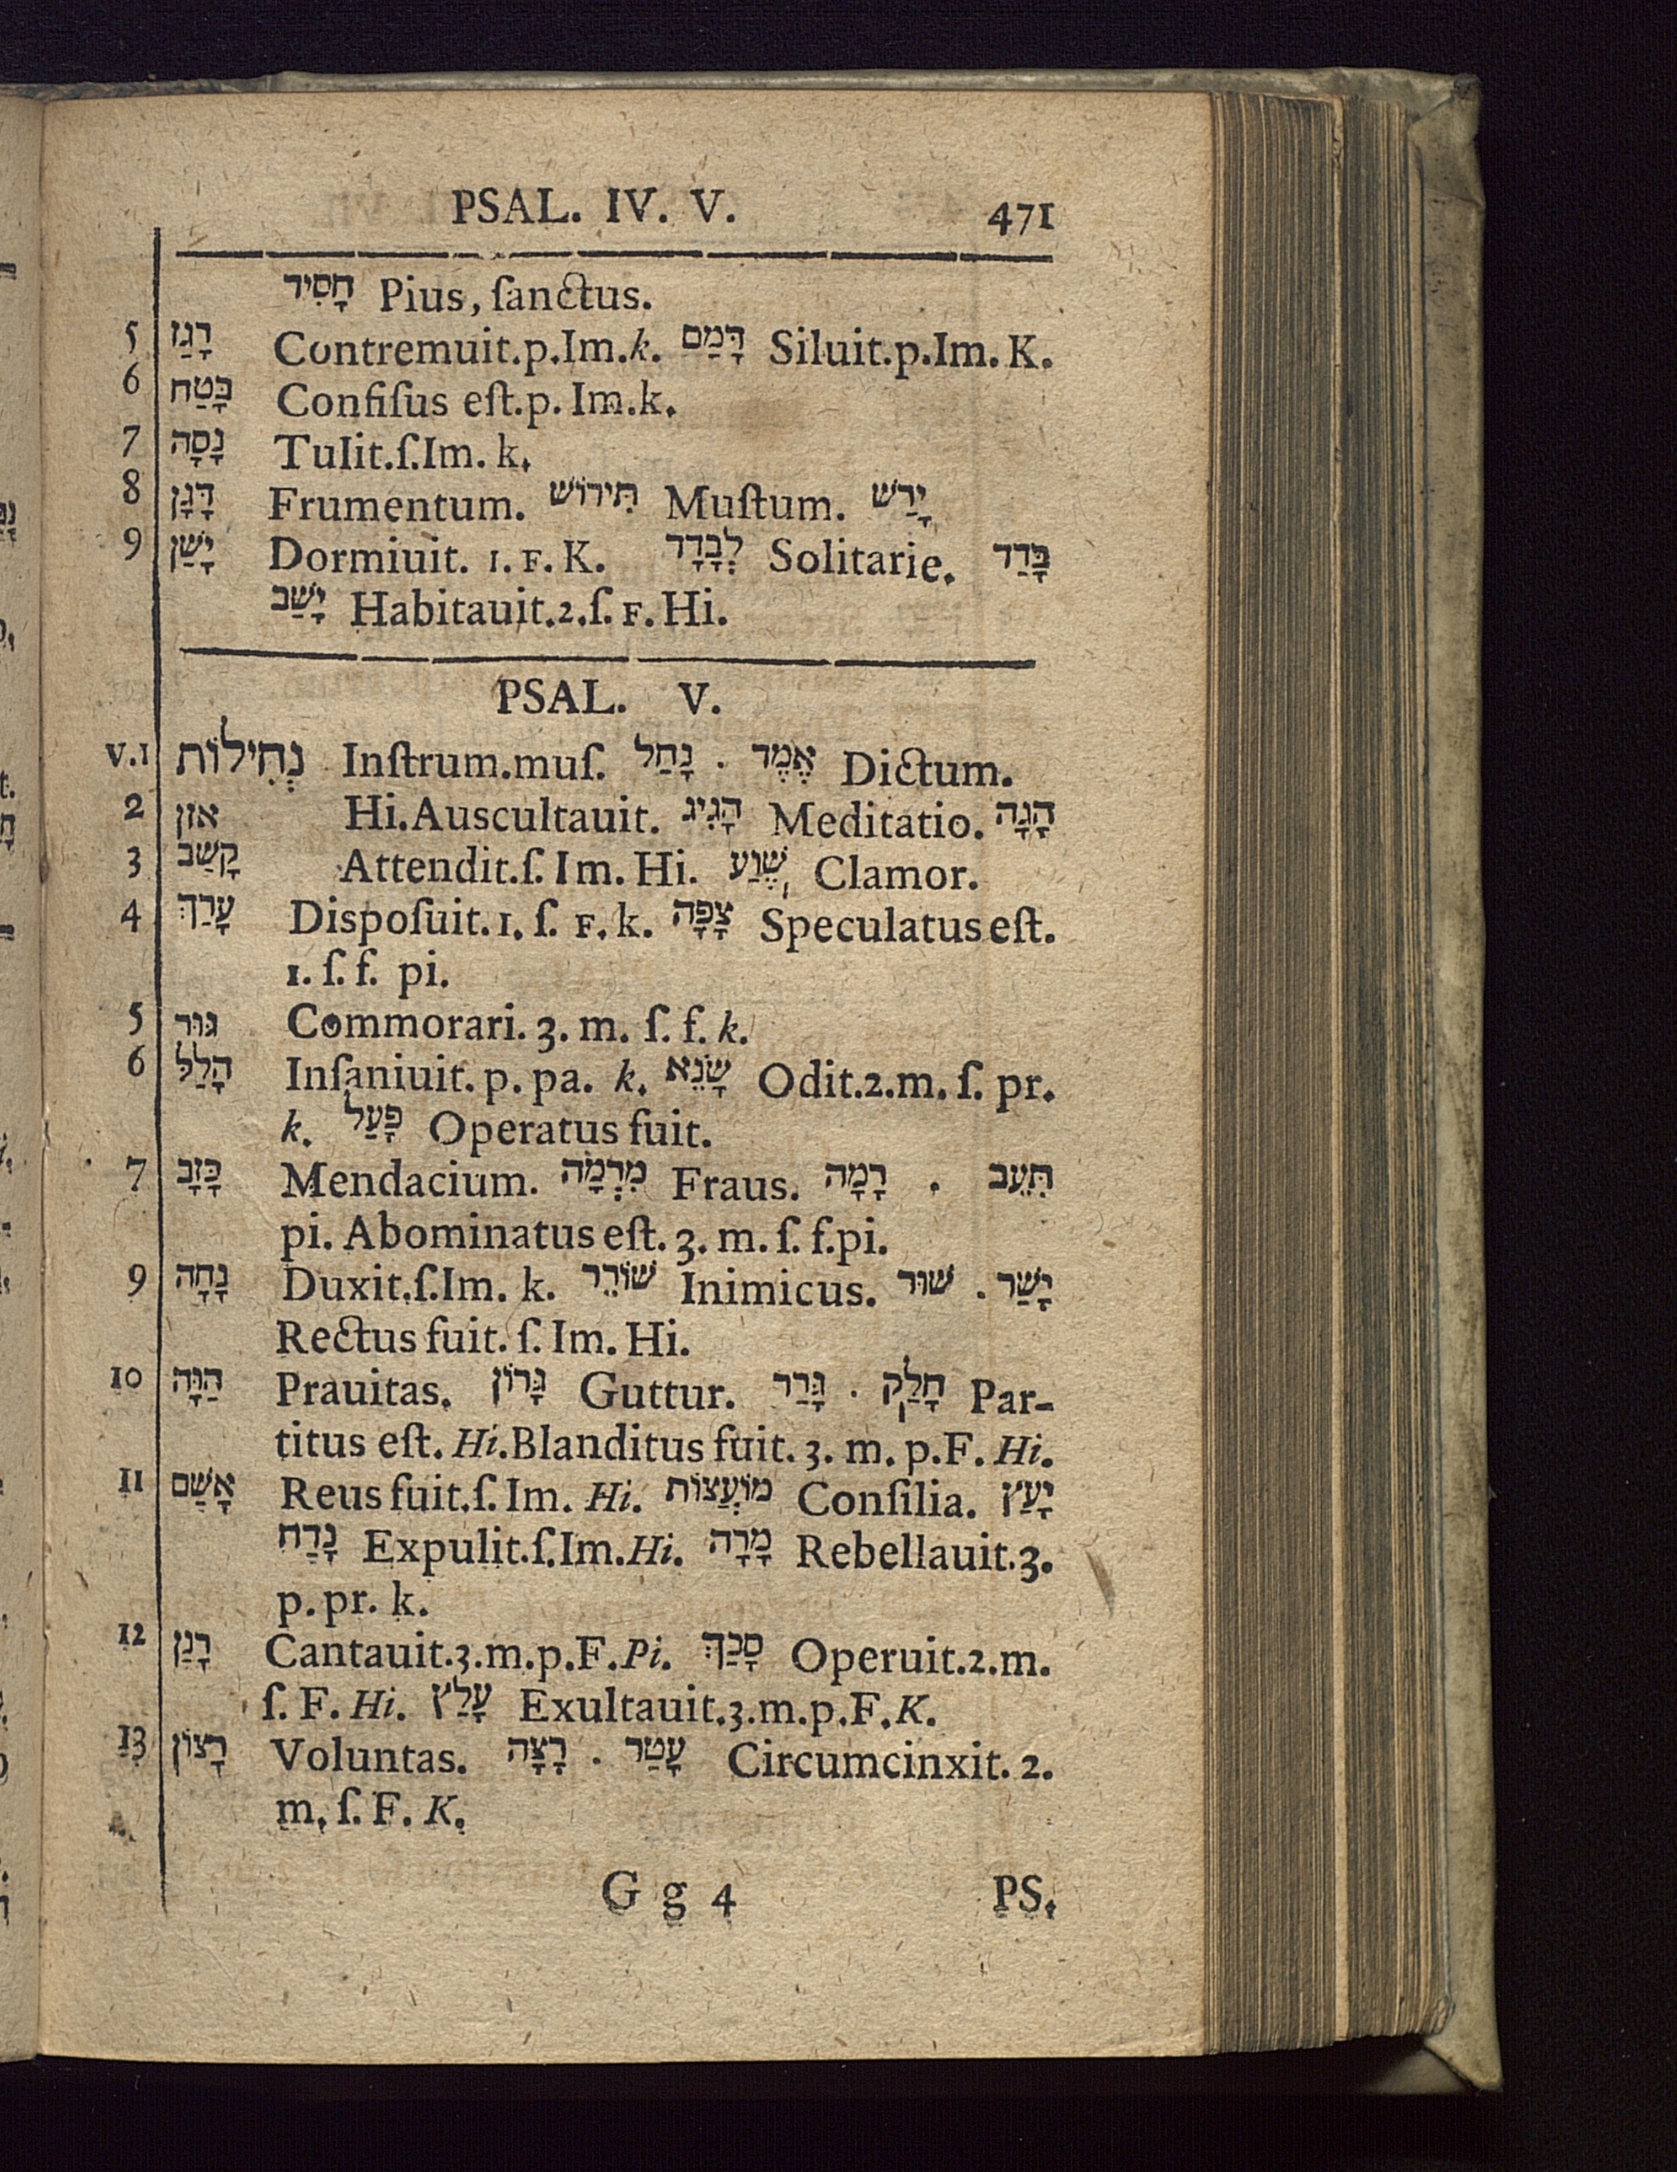 PSAL. IV. V. 471
חָסִיד Pius, ſanctus.
5 רָגַז Contremuit.p.Im.k. דָּמַם Siluit.p.Im. K.
6 בָּטַח Confiſus eſt.p. Im.k.
7 נָסָה Tulit.ſ.Im. k.
8 דָּגָן Frumentum. תִּירוֹשׁ Muſtum. יָרַשׁ
9 יָשַׁן Dormiuit. 1. F. K. לְבָדָד Solitarie. בָּדַד
יָשַׁב Habitauit.2.ſ. F. Hi.
PSAL. V.
V.1 נְחִילוֹת Inſtrum.muſ. נָחַל . אֶמֶר Dictum.
2 אזן Hi.Auscultauit. הָגִיג Meditatio. הָגָה
3 קָשַׁב Attendit.ſ. Im. Hi. שֶׁוַע Clamor.
4 עָרַךְ Diſpoſuit. 1. ſ. F. k. צָפָה Speculatus eſt.
1. ſ. f. pi.
5 גּוּר Commorari. 3. m. ſ. f. k.
6 הָלַל Inſaniuit. p. pa. k. שָׂנֵא Odit.2.m. ſ. pr.
k. פָּעַל Operatus fuit.
7 כָּזָב Mendacium. מִרְמָה Fraus. רָמָה . תִּעֵב
pi. Abominatus eſt. 3. m. ſ. f.pi.
9 נָחָה Duxit.ſ.Im. k. שׁוֹרֵר Inimicus. שׁוּר . יָשַׁר
Rectus fuit. ſ. Im. Hi.
10 הַוָּה Prauitas. גָּרוֹן Guttur. גָּרַר . חָלַק Par-
titus eſt. Hi.Blanditus fuit. 3. m. p.F. Hi.
11 אָשַׁם Reus fuit.ſ. Im. Hi. מוֹעֲצוֹת Conſilia. יָעַץ
נָדַח Expulit.ſ.Im.Hi. מָרָה Rebellauit.3.
p. pr. k.
12 רָנַן Cantauit.3.m.p.F.Pi. סָכַךְ Operuit.2.m.
ſ. F. Hi. עָלַץ Exultauit.3.m.p.F.K.
13 רָצוֹן Voluntas. רָצָה . עָטַר Circumcinxit. 2.
m. ſ. F. K.
G g 4 PS.